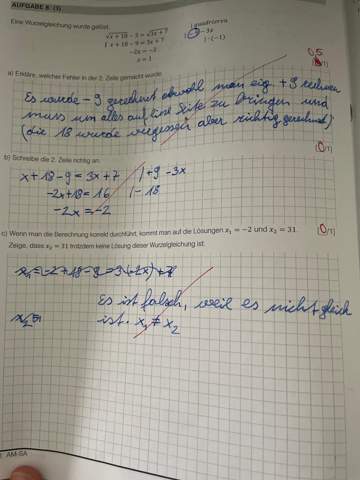 AUFGABE 8: (3)
Eine Wurzelgleichung wurde gelöst.
√x + 18 - 3 = √3x + 7 | quadrieren
x + 18 - 9 = 3x + 7 | -3x
-2x = -2 | · (-1)
x = 1
0,5
a) Erkläre, welcher Fehler in der 2. Zeile gemacht wurde.
Es wurde - 9 gerechnet obwohl man eig + 9 rechnen
muss um alles auf eine Seite zu bringen und
(die 18 wurde vergessen aber richtig gerechnet)
(0/1)
b) Schreibe die 2. Zeile richtig an.
x + 18 - 9 = 3x + 7 | + 9 - 3x
-2x + 18 = 16 | - 18
-2x = -2
(0/1)
c) Wenn man die Berechnung korrekt durchführt, kommt man auf die Lösungen x₁ = -2 und x₂ = 31.
Zeige, dass x₂ = 31 trotzdem keine Lösung dieser Wurzelgleichung ist.
Es ist falsch, weil es nicht gleich
ist. x₁ ≠ x₂
AM-SA